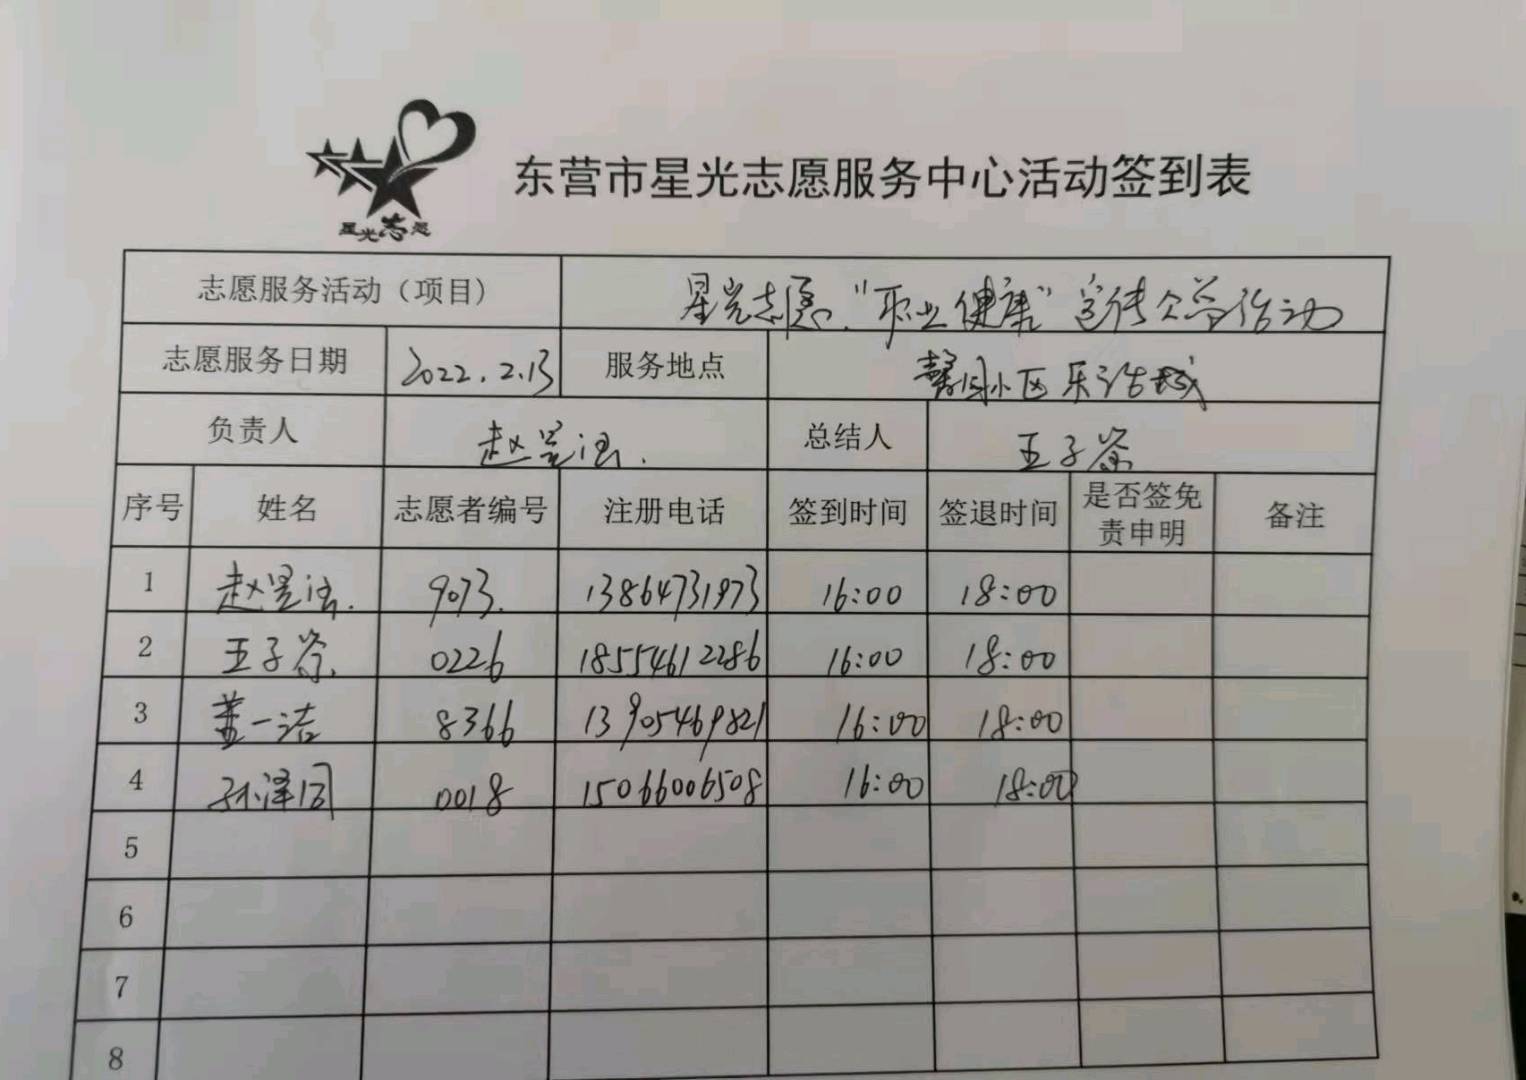 星光志愿
东营市星光志愿服务中心活动签到表
志愿服务活动（项目） 星光志愿“职业健康”宣传公益活动
志愿服务日期 2022.2.13 服务地点 馨园小区乐活城
负责人 赵 总结人 王子
序号 姓名 志愿者编号 注册电话 签到时间 签退时间 是否签免责申明 备注
1 赵 9073. 13864731973 16:00 18:00
2 王子 0226 18554612286 16:00 18:00
3 盖一洁 8366 13905469821 16:00 18:00
4 孙泽同 0018 15066006508 16:00 18:00
5
6
7
8